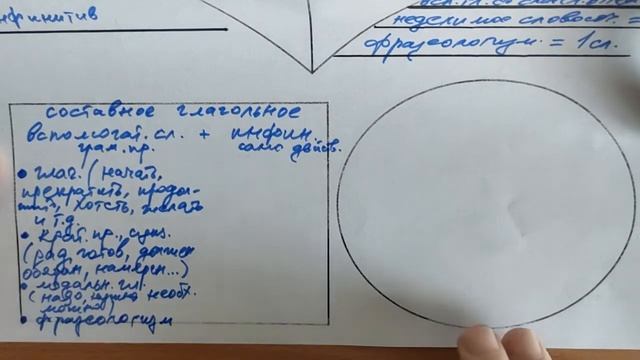 инфинитив
неделимое словосоч. =
фразеологизм. = 1 сл.
составное глагольное
вспомогат. сл. + инфин.
грам. пр. само действ.
• глаг. (начать,
прекратить, продол-
жить, хотеть, желать
и т.д.
• крат. пр., сущ.
(рад, готов, должен
обязан, намерен...)
• модальн. гл.
(надо, нужно необх.
можно)
• фразеологизм